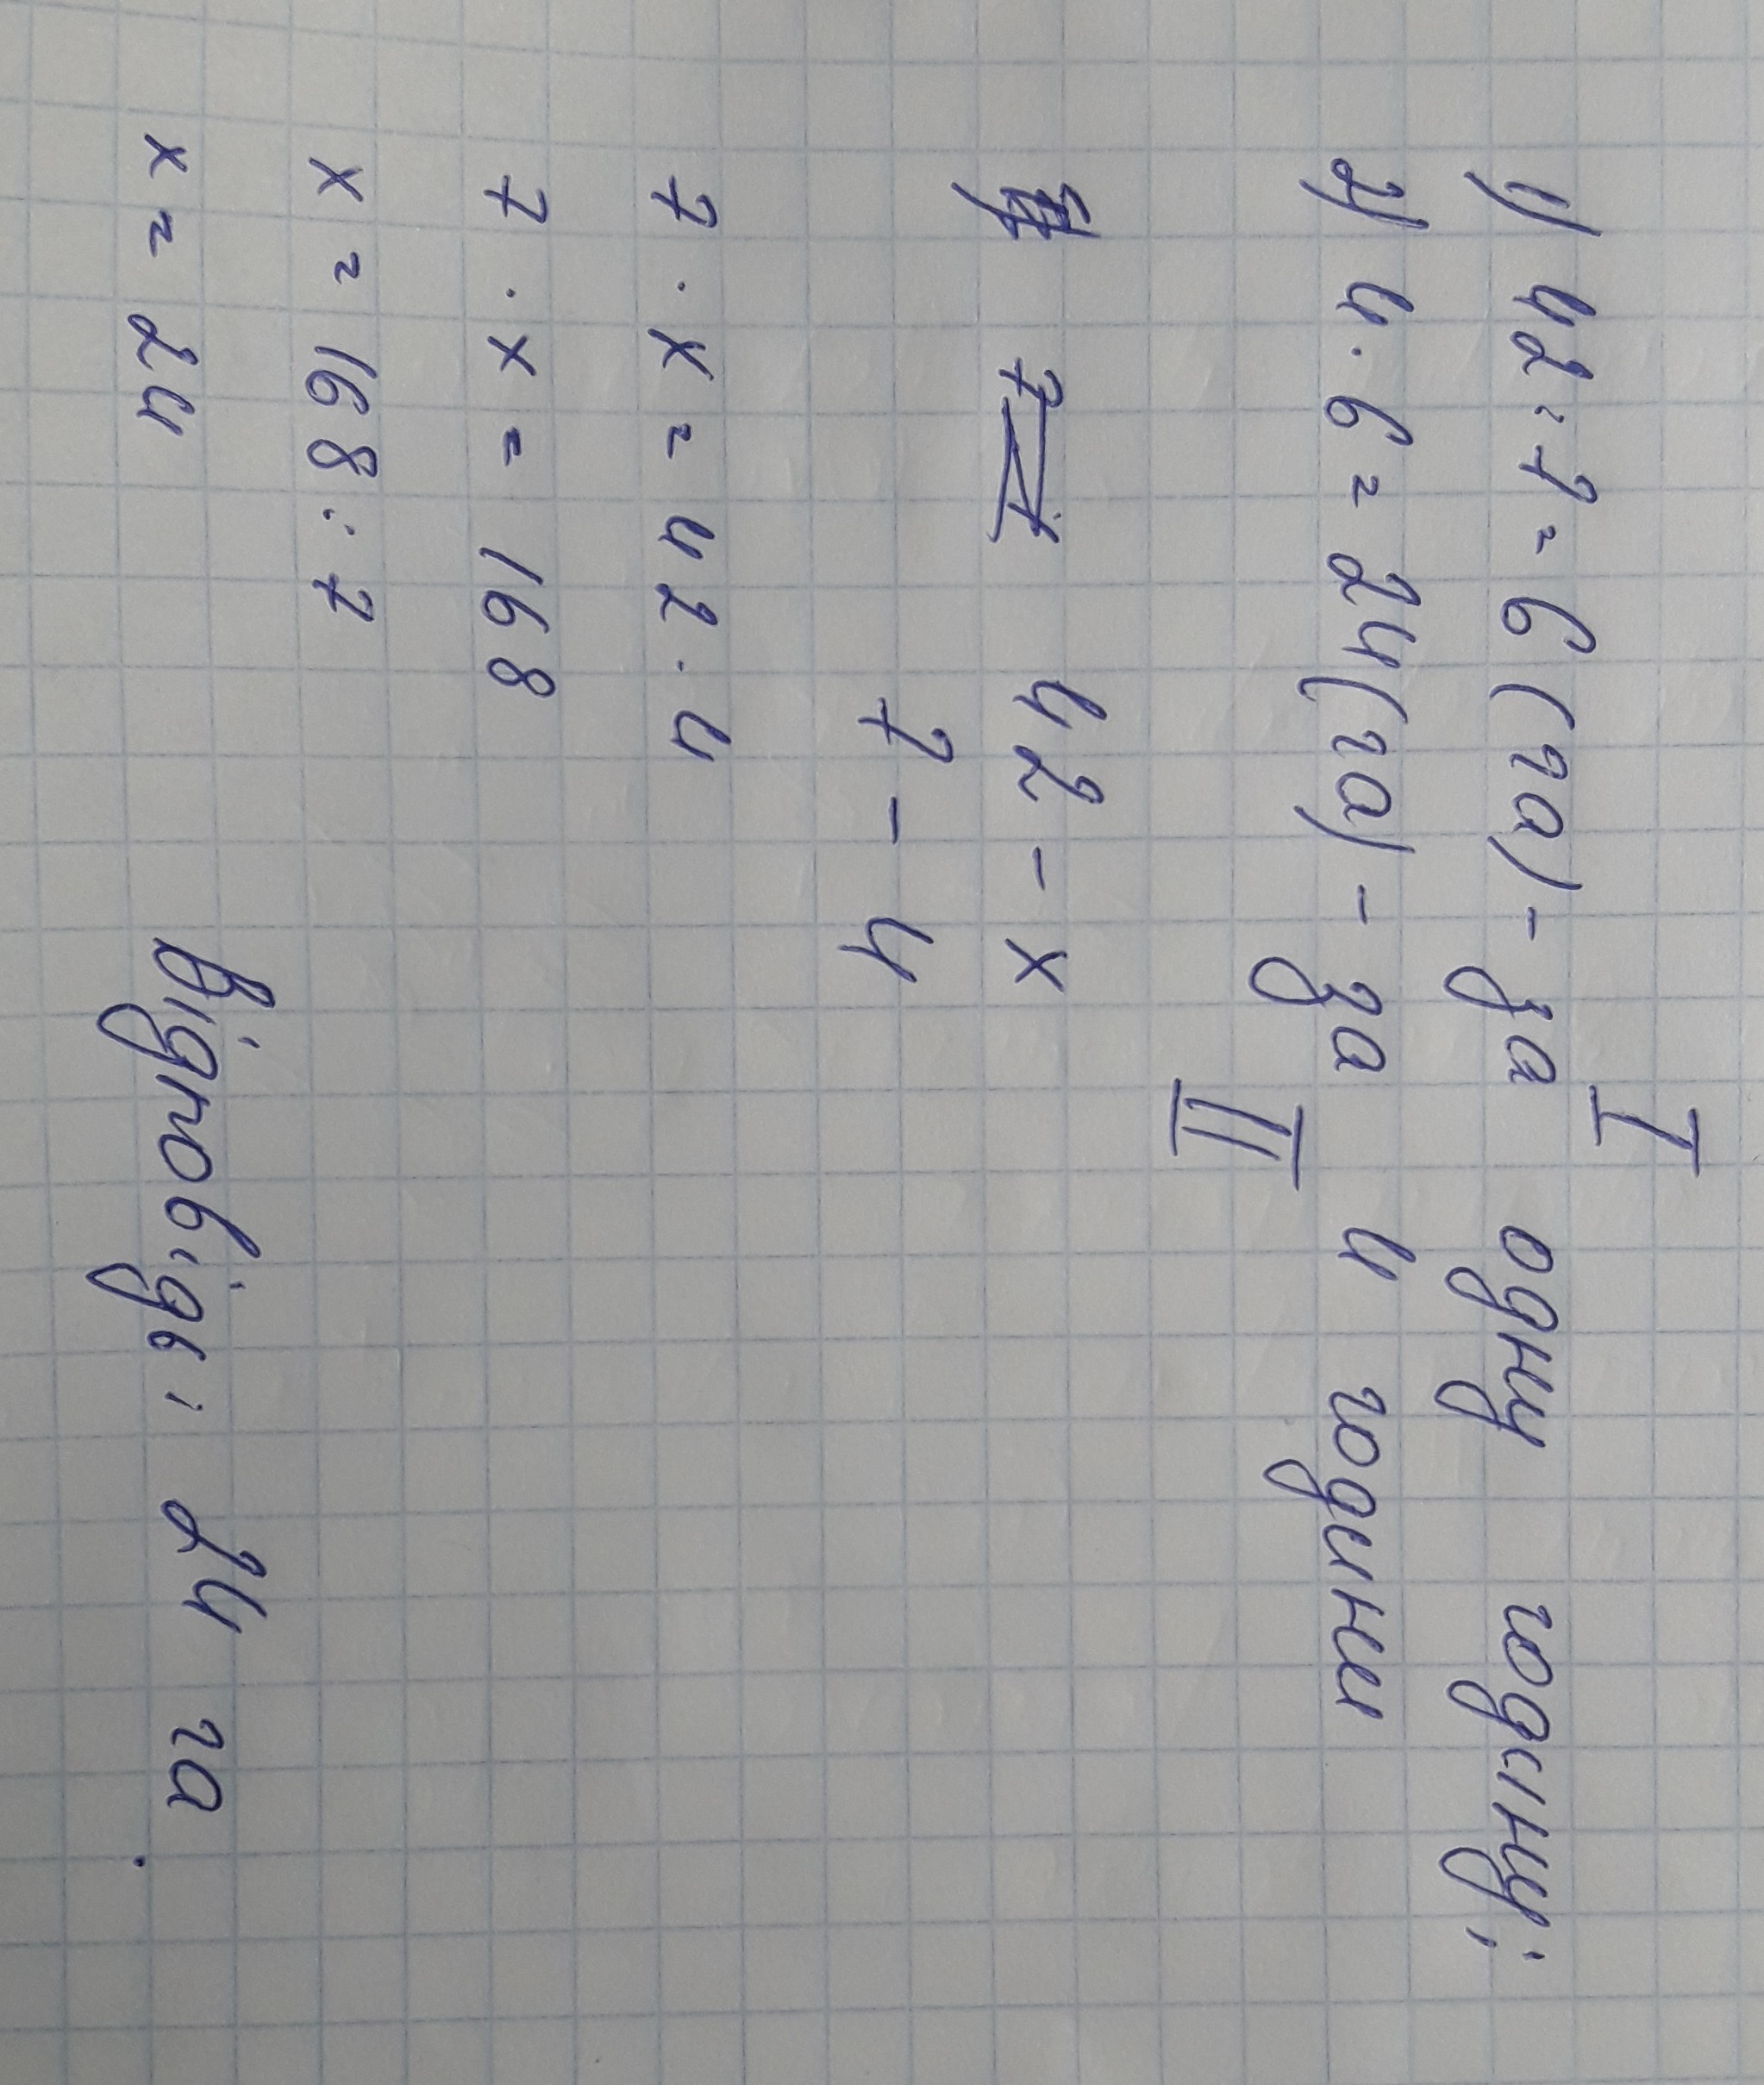 I
1) 42:7=6(га)-за одну годину;
2) 4·6=24(га)-за 4 години
II
42-x
7-4
7·x=42·4
7·x=168
x=168:7
x=24
Відповідь: 24 га.